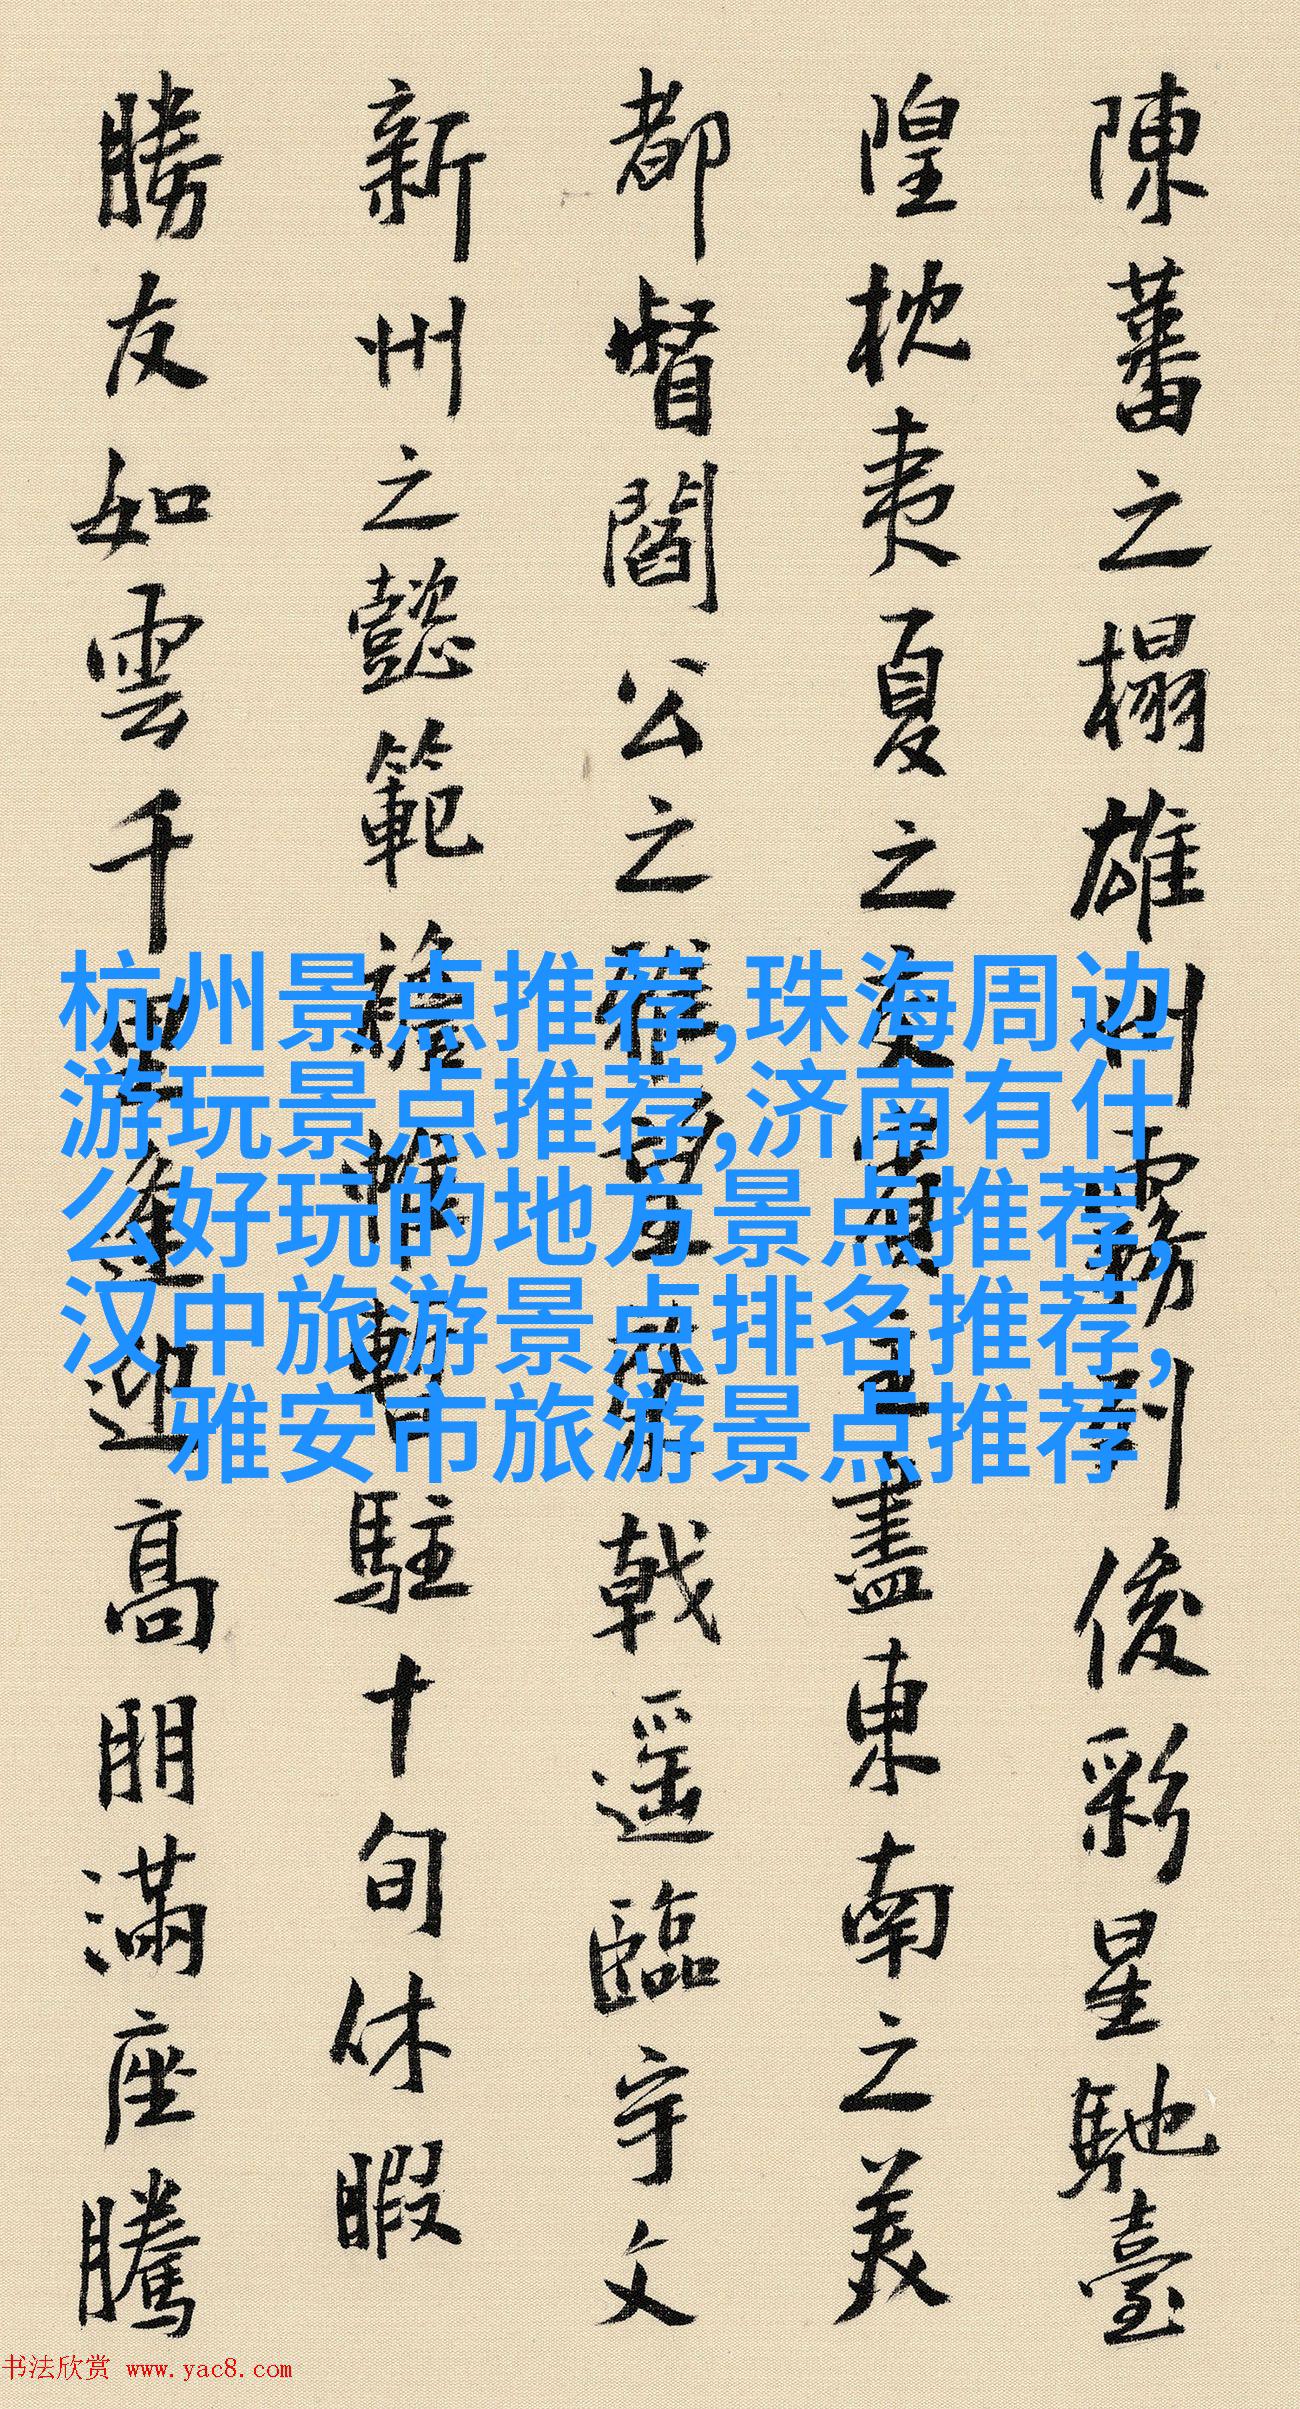 陳蕃之榻雄州霧列俊彩星馳臺
隍枕夷夏之交賓主盡東南之美
都督閻公之雅望棨戟遥臨宇文
新州之懿範襜帷暫駐十旬休暇
勝友如雲千里逢迎高朋滿座騰
杭州景点推荐,珠海周边
游玩景点推荐,济南有什
么好玩的地方景点推荐,
汉中旅游景点排名推荐,
雅安市旅游景点推荐
书法欣赏 www.yac8.com